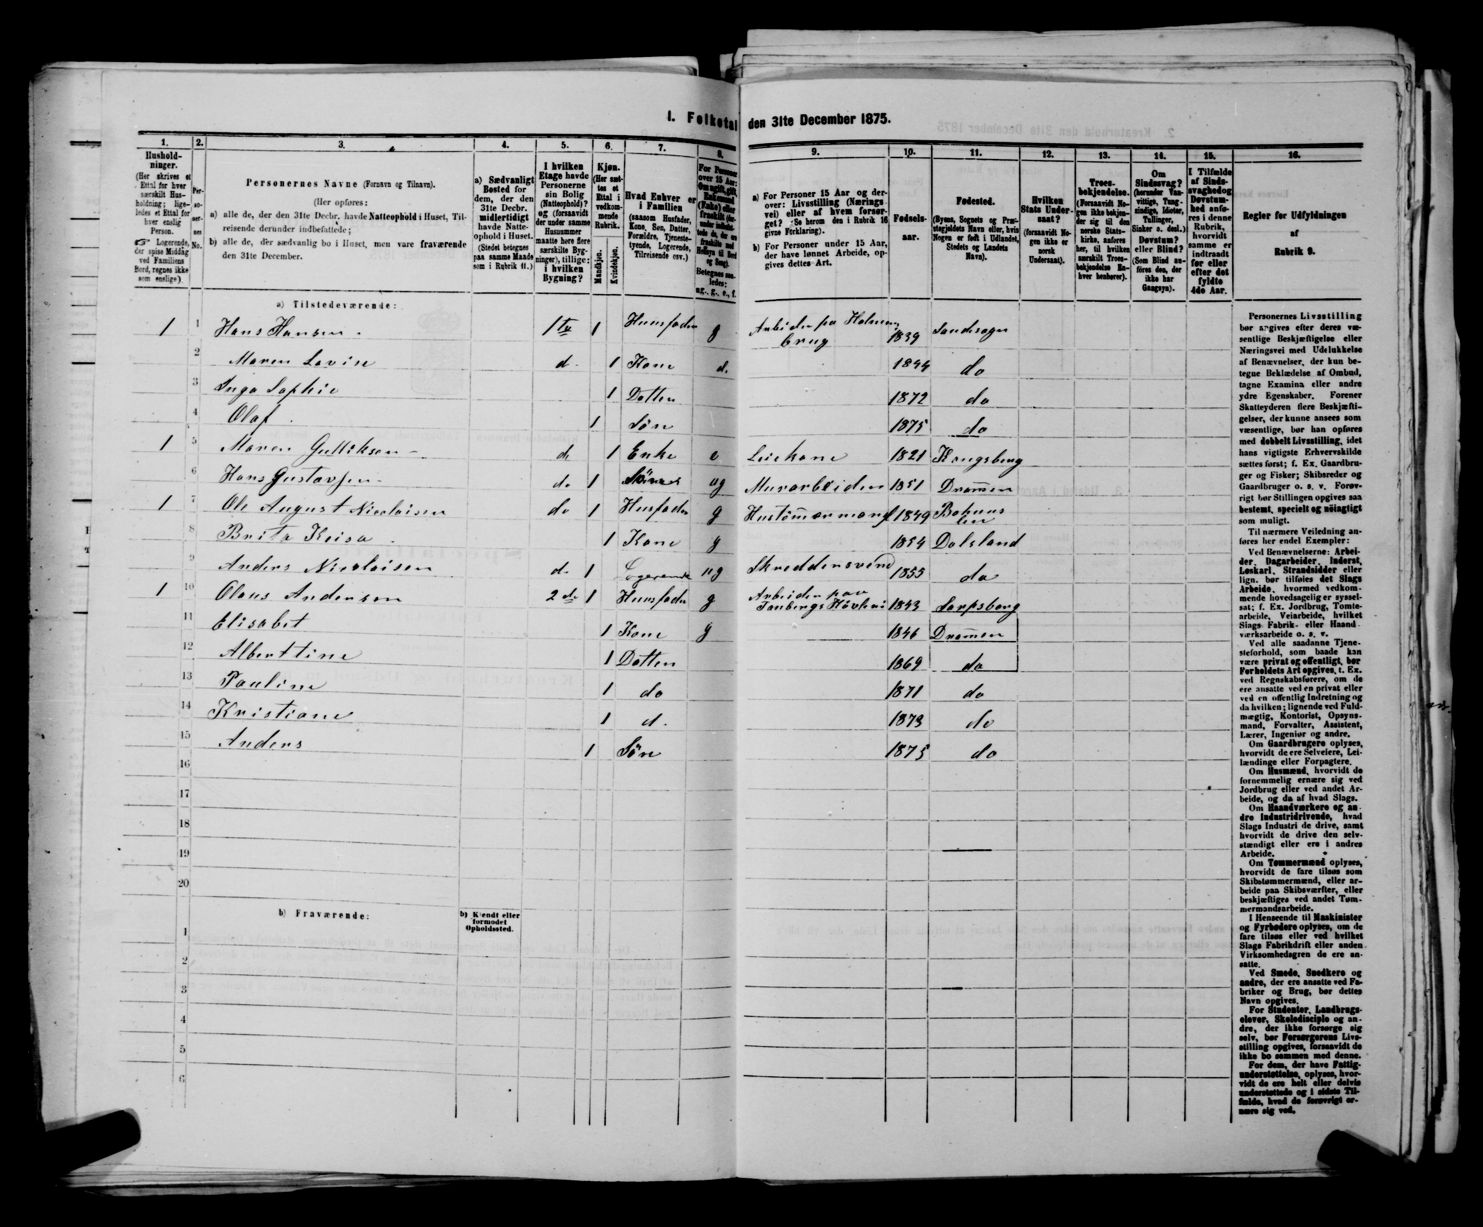 I. Folketal den 31te December 1875.
1. 2. 3. 4. 5. 6. 7. 8. 9. 10. 11. 12. 13. 14. 15. 16.
Hushold-
ninger.
(Her skrives et
Ettal for hver
særskilt Hus-
holdning; lige-
ledes et Ettal for
hver enslig
Person.
☞ Logerende,
der spise Middag
ved Familiens
Bord, regnes ikke
som enslige).
Per-
so-
ner-
nes
No.
Personernes Navne (Fornavn og Tilnavn).
(Her opføres:
a) alle de, der den 31te Decbr. havde Natteophold i Huset, Til-
reisende derunder indbefattede;
b) alle de, der sædvanlig bo i Huset, men vare fraværende
den 31te December.
a) Sædvanligt
Bosted for
dem, der den
31te Decbr.
midlertidigt
havde Natte-
ophold i Huset.
(Stedet betegnes
paa samme Maade
som i Rubrik 11.)
I hvilken
Etage havde
Personerne
sin Bolig
(Natteophold)?
og (forsaavidt
der under samme
Husnummer
maatte høre flere
særskilte Byg-
ninger), tillige:
i hvilken
Bygning?
Kjøn.
(Her sæt-
tes et
Ettal i
vedkom-
mende
Rubrik.
Mandkjøn.
Kvindekjøn.
Hvad Enhver er
i Familien
(saasom Husfader,
Kone, Søn, Datter,
Forældre, Tjeneste-
tyende, Logerende,
Tilreisende osv.)
For Personer
over 15 Aar:
Om ugift, gift,
Enkemand
(Enke) eller
fraskilt
Betegnes saa-
ledes:
ug., g., e., f.
a) For Personer 15 Aar og der-
over: Livsstilling (Nærings-
vei) eller af hvem forsør-
get? (Se herom den i Rubrik 16
givne Forklaring).
b) For Personer under 15 Aar,
der have lønnet Arbeide, op-
gives dettes Art.
Fødsels-
aar.
Fødested.
(Byens, Sognets og Præ-
stegjeldets Navn eller, hvis
Nogen er født i Udlandet,
Stedets og Landets
Navn).
Hvilken
Stats Under-
saat?
(forsaavidt No-
gen ikke er
norsk
Undersaat).
Troes-
bekjendelse.
(Forsaavidt No-
gen ikke bekjen-
der sig til den
norske Stats-
kirke, anføres
her, til hvilken
særskilt Troes-
bekjendelse En-
hver henhører).
Om
Sindssvag?
(herunder Van-
vittige, Tung-
sindige, Idioter,
Tullinger,
Sinker o. desl.)
Døvstum?
eller Blind?
(Som Blind an-
føres den, der
ikke har
Gangsyn).
I Tilfælde
af Sinds-
svaghed og
Døvstum-
hed anfø-
res i denne
Rubrik,
hvorvidt
samme er
indtraadt
før eller
efter det
fyldte
4de Aar.
Regler for Udfyldningen
af
Rubrik 9.
a) Tilstedeværende:
1 1 Hans Hansen 1 te 1 Huusfader g Arbeider paa Holmens brug 1839 Sandesogn
2 Maren Lovise d. 1 Kone d. 1844 do
3 Inga Sophie 1 Datter 1872 do
4 Olaf 1 Søn 1875 do
1 5 Maren Gulliksen d. 1 Enke e Leiekone 1821 Kongsberg
6 Hans Gustavsen do 1 ug Murarbeider 1851 Dramen
1 7 Ole August Nicolaisen do 1 Husfader g Hustømermand 1849
8 Brita Keisa 1 Kone g 1854 Dalsland
9 Anders Nicolaisen d. 1 Logerende ug Skreddersvend 1855 do
1 10 Olaus Andersen 2 de 1 Huusfader g Arbeider paa Tanbergs Høvleri 1843 Sarpsborg
11 Elisabet 1 Kone g 1846 Dramen
12 Alberttine 1 Datter 1869 do
13 Pauline 1 do 1871 do
14 Kristiane 1 d. 1873 do
15 Anders 1 Søn 1875 do
16
17
18
19
20
b) Fraværende:
b) Kjendt eller
formodet
Opholdssted.
1
2
3
4
5
6
Personernes Livsstilling
bør angives efter deres væ-
sentlige Beskjæftigelse eller
Næringsvei med Udelukkelse
af Benævnelser, der kun be-
tegne Beklædelse af Ombud,
tagne Examina eller andre
ydre Egenskaber. Forener
Skatteyderen flere Beskjæfti-
gelser, der kunne ansees som
væsentlige, bør han opføres
med dobbelt Livsstilling, idet
hans vigtigste Erhvervskilde
sættes først; f. Ex. Gaardbru-
ger og Fisker; Skibsreder og
Gaardbruger o. s. v. Forøv-
rigt bør Stillingen opgives saa
bestemt, specielt og nøiagtigt
som muligt.
Til nærmere Veiledning an-
føres her endel Exempler:
Ved Benævnelserne: Arbei-
der, Dagarbeider, Inderst,
Løskarl, Strandsidder eller
lign. bør tilføies det Slags
Arbeide, hvormed vedkom-
mende hovedsagelig er syssel-
sat; f. Ex. Jordbrug, Tomte-
arbeide, Veiarbeide, hvilket
Slags Fabrik- eller Haand-
værksarbeide o. s. v.
Ved alle saadanne Tjene-
steforhold, som baade kan
være privat og offentligt, bør
Forholdets Art opgives, t. Ex.
ved Regnskabsførere, om de
ere ansatte ved en privat eller
ved en offentlig Indretning og
da hvilken; lignende ved Fuld-
mægtig, Kontorist, Opsyns-
mand, Forvalter, Assistent,
Lærer, Ingeniør og andre.
Om Gaardbrugere oplyses,
hvorvidt de ere Selveiere, Lei-
lændinge eller Forpagtere.
Om Husmænd, hvorvidt de
fornemmelig ernære sig ved
Jordbrug eller ved andet Ar-
beide, og da af hvad Slags.
Om Haandværkere og an-
dre Industridrivende, hvad
Slags Industri de drive, samt
hvorvidt de drive den selv-
stændigt eller ere i andres
Arbeide.
Om Tømmermænd oplyses,
hvorvidt de fare tilsøs som
Skibstømmermænd, eller ar-
beide paa Skibsværfter, eller
beskjæftiges ved andet Tøm-
mermandsarbeide.
I Henseende til Maskinister
og Fyrbødere oplyses, om de
fare tilsøs eller ved hvilket
Slags Fabrikdrift eller anden
Virksomhedsgren de ere an-
satte.
Ved Smede, Snedkere og
andre, der ere ansatte ved Fa-
briker og Brug, bør dettes
Navn opgives.
For Studenter, Landbrugs-
elever, Skoledisciple og an-
dre, der ikke forsørge sig
selv, bør Forsørgerens Livs-
stilling opgives, forsaavidt de
ikke bo sammen med denne.
For dem, der have Fattig-
understøttelse, oplyses, hvor-
vidt de ere helt eller delvis
understøttede og i sidste Til-
fælde, hvad de forøvrigt er-
nære sig ved.